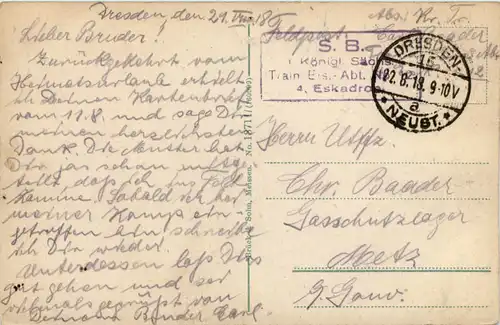 Dresden, den 21. VIII. 18
Lieber Bruder!
Zurückgekehrt vom
Heimatsurlaub erhielt
ich Deinen Kartenbrief
vom 11.8. und sage Dir
meinen herzlichsten
Dank. Die Mutter hat
Dir ja schon mitge-
teilt daß ich ins Feld
komme. Sobald ich bei
meiner Kamps ein-
getroffen bin schreibe
ich Dir wieder.
Unterdessen laß Dirs
gut gehen und sei
vielmals gegrüßt von
Deinem Bruder Carl.
Brück & Sohn, Meissen. No. 18711
Feldpost
Abs.
Baader
S. B.
1 Königl. Sächs.
Train Ers.-Abt.
4. Eskadron
DRESDEN
15
22.8.18. 9-10V
a
* NEUST. *
Herrn Utffz.
Chr. Baader
Gasschutzlager
Metz
G. Gouv.